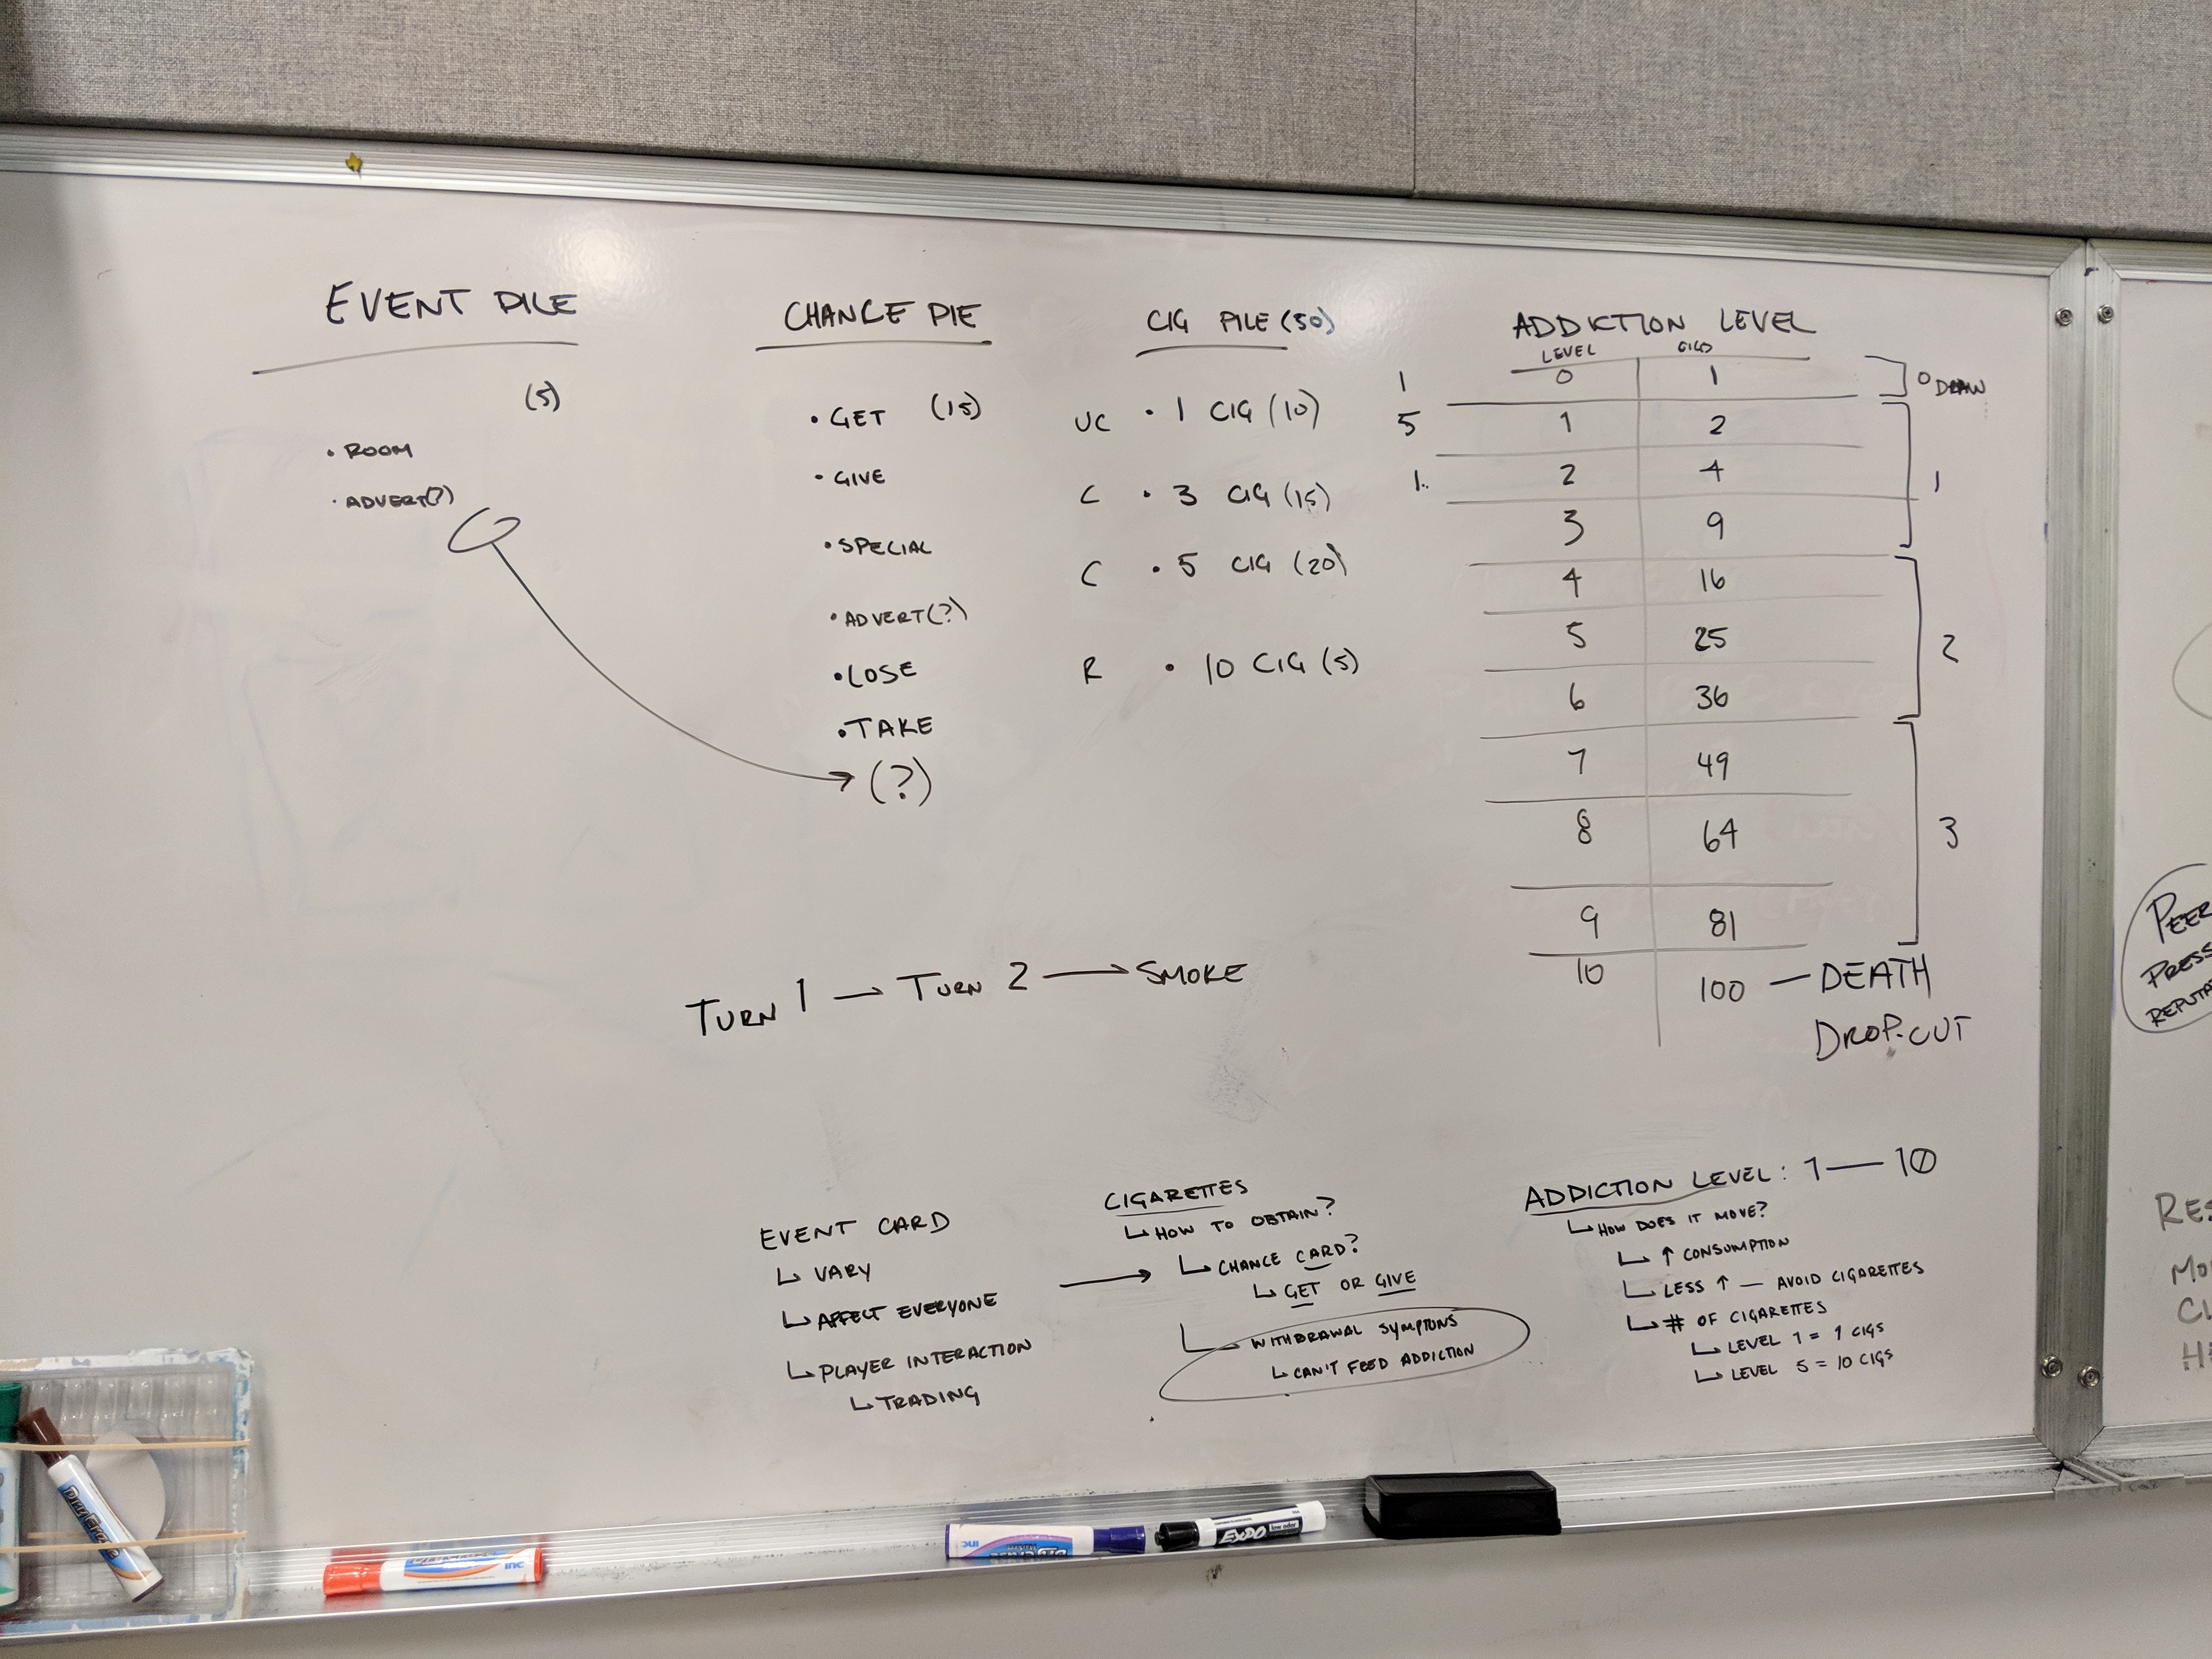 EVENT PILE
(5)
• ROOM
• ADVERT(?)
CHANCE PIE
• GET (15)
• GIVE
• SPECIAL
• ADVERT(?)
• LOSE
• TAKE
(?)
CIG PILE (50)
UC • 1 CIG (10)
C • 3 CIG (15)
C • 5 CIG (20)
R • 10 CIG (5)
ADDICTION LEVEL
LEVEL CIGS
1 0 1 0 DRAW
5 1 2
1.. 2 4 1
3 9
4 16
5 25 2
6 36
7 49
8 64 3
9 81
10 100 — DEATH
DROP-OUT
TURN 1 → TURN 2 → SMOKE
EVENT CARD
↳ VARY
↳ AFFECT EVERYONE
↳ PLAYER INTERACTION
↳ TRADING
CIGARETTES
↳ HOW TO OBTAIN?
↳ CHANCE CARD?
↳ GET OR GIVE
WITHDRAWAL SYMPTONS
↳ CAN'T FEED ADDICTION
ADDICTION LEVEL: 1 — 10
↳ HOW DOES IT MOVE?
↳ ↑ CONSUMPTION
↳ LESS ↑ — AVOID CIGARETTES
↳ # OF CIGARETTES
↳ LEVEL 1 = 1 CIGS
↳ LEVEL 5 = 10 CIGS
PEER
PRESS
REPUTA
RES
MO
CL
H
EXPO
low odor